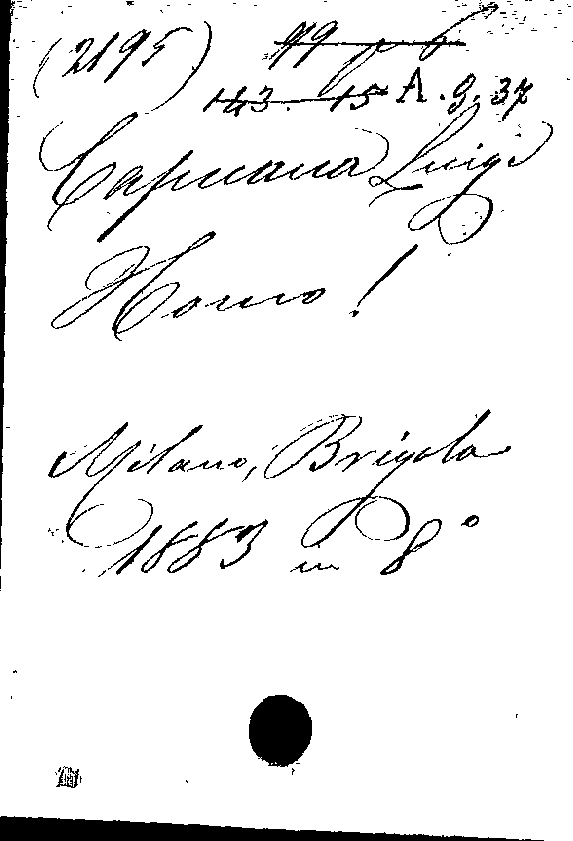 (2195) 99 p 6
143. 15 A. 9. 37
Capuana Luigi
Homo!
Milano, Brigola
1883 in 8°